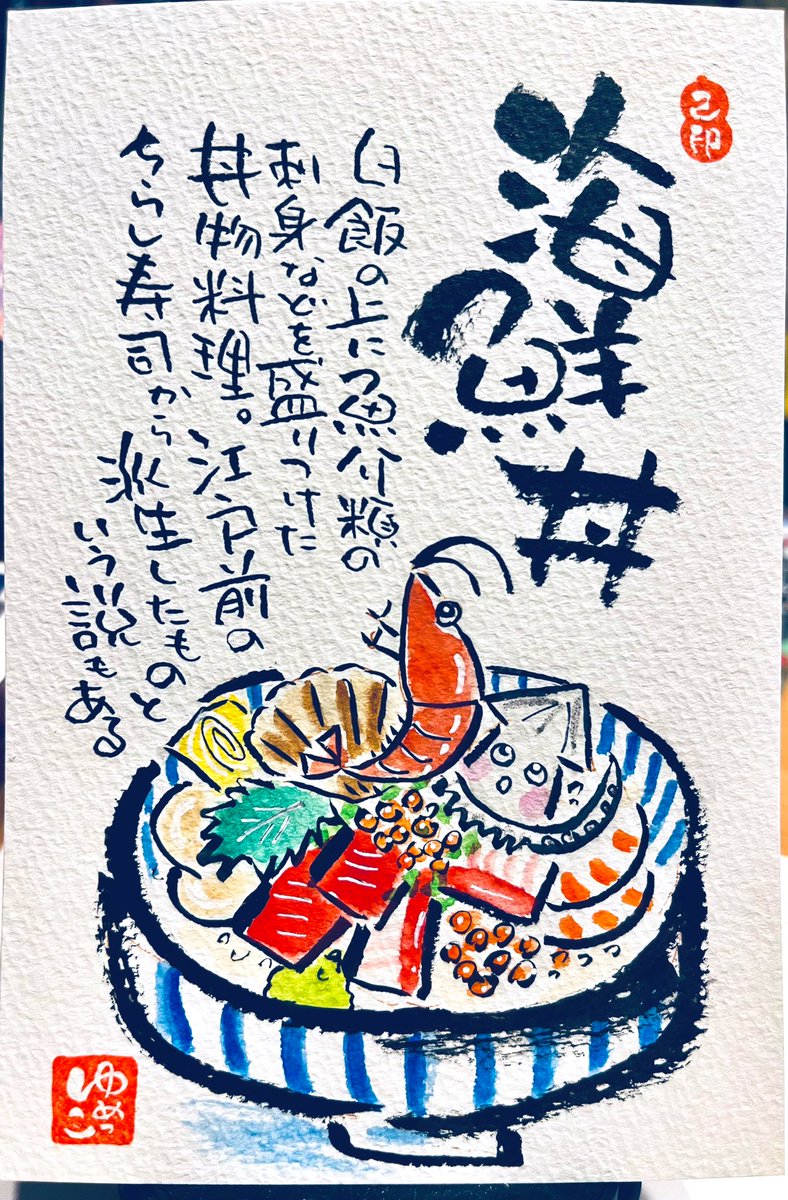 海鮮丼
白飯の上に魚介類の
刺身などを盛りつけた
丼物料理。江戸前の
ちらし寿司から派生したものと
いう説もある
ゆめっこ